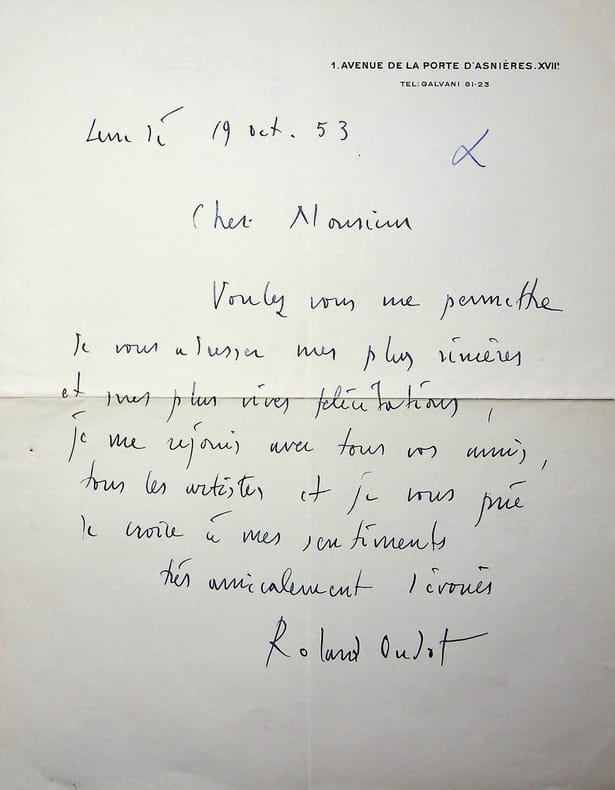 1. AVENUE DE LA PORTE D'ASNIÈRES. XVIIE
TEL: GALVANI 81-23
Lundi 19 oct. 53
Cher Monsieur
Voulez vous me permettre
de vous adresser mes plus sincères
et mes plus vives félicitations,
je me réjouis avec tous vos amis,
tous les artistes et je vous prie
de croire à mes sentiments
très amicalement dévoués
Roland Oudot